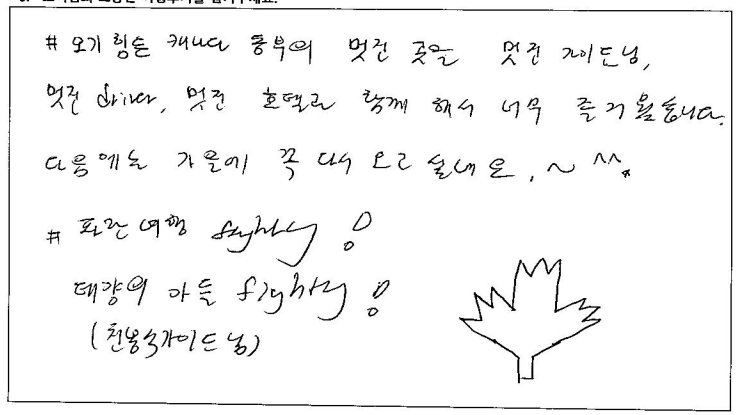 # 오기 힘든 캐나다 동부의 멋진 곳을 멋진 가이드님,
멋진 driver, 멋진 호텔과 함께 해서 너무 즐거웠습니다.
다음에는 가을에 꼭 다시 오고 싶네요. ~ ^^.
# 파란여행 fighting!
태양의 아들 fighting!
(천봉숙가이드님)